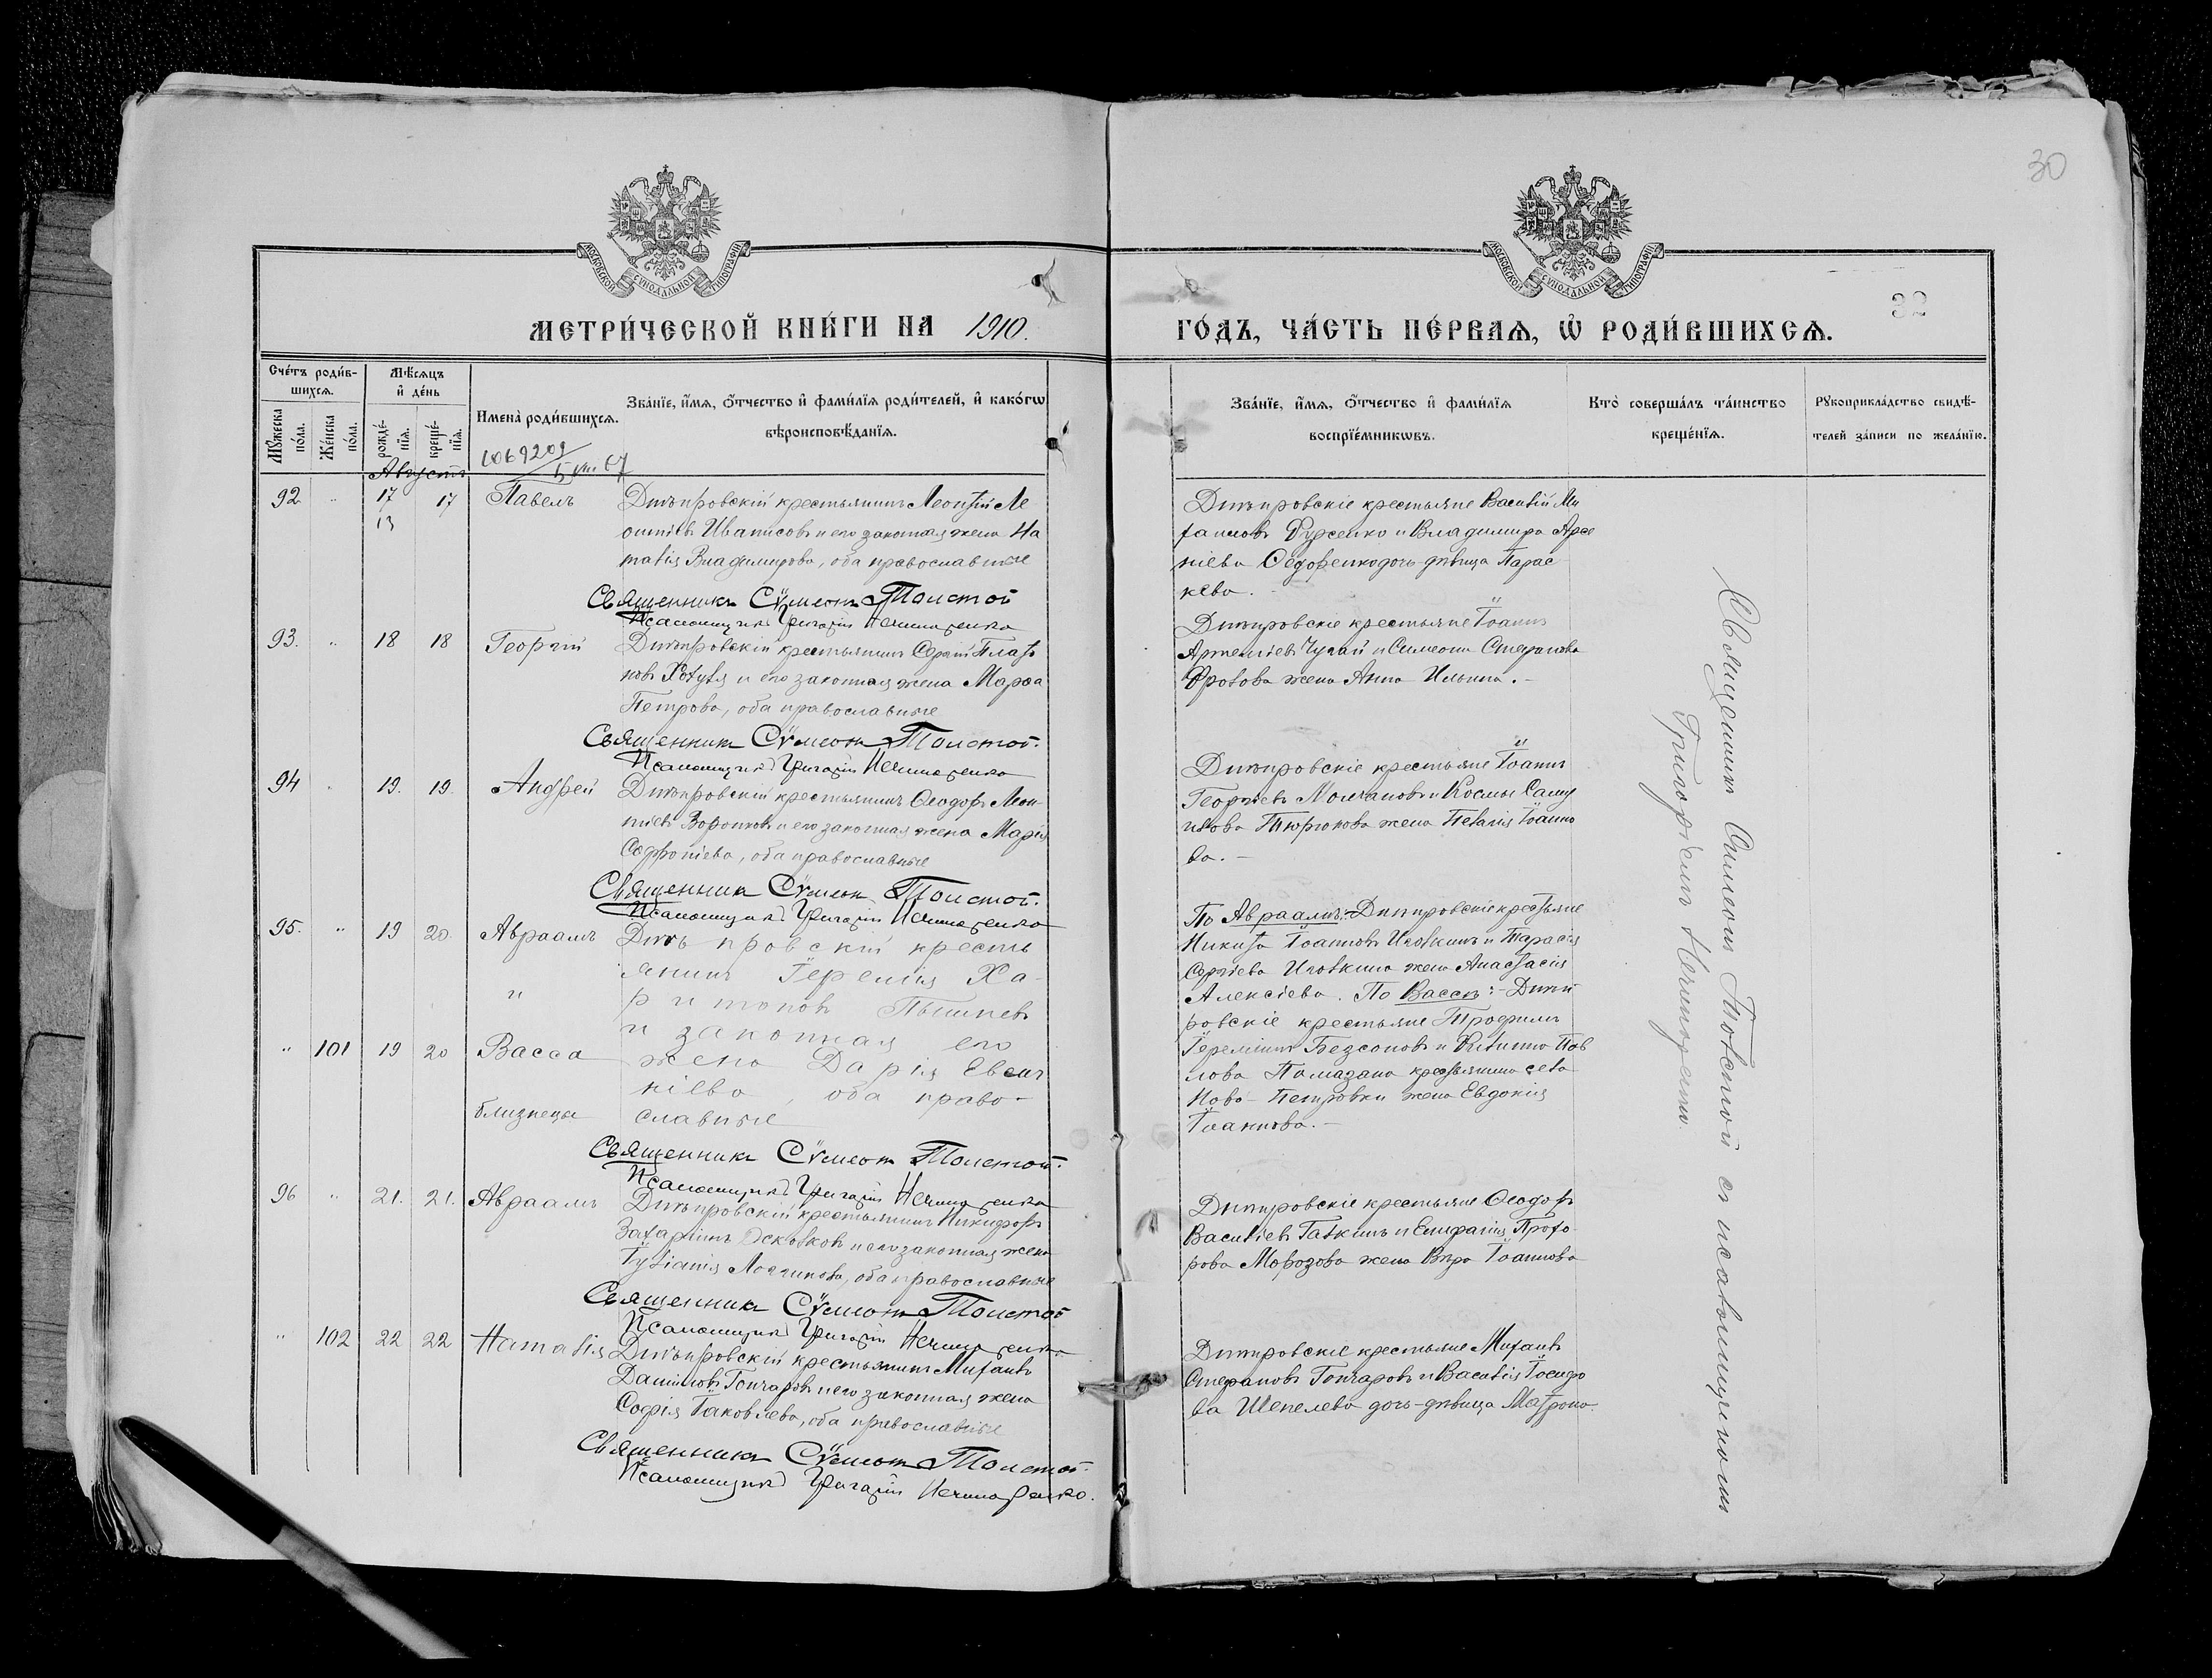 30
МОСКОВСКОЙ СѴНОДАЛЬНОЙ ТИПОГРАФІИ
МОСКОВСКОЙ СѴНОДАЛЬНОЙ ТИПОГРАФІИ
32
МЕТРИ́ЧЕСКОЙ КНИ́ГИ НА 1910.
ГО́ДЪ, ЧА́СТЬ ПЕ́РВАѦ, Ѡ҆ РОДИ́ВШИХСѦ.
Сче́тъ роди́в-
шихсѧ.
Мꙋ́жеска по́ла.
Же́нска по́ла.
Мѣ́сѧцъ
и҆ де́нь
рожде́-
нїѧ.
креще́-
нїѧ.
Имена̀ роди́вшихсѧ.
Зва́нїе, и҆́мѧ, ѻ҆́тчество и҆ фами́лїѧ роди́телей, и҆ како́гѡ
вѣроисповѣ́данїѧ.
Зва́нїе, и҆́мѧ, ѻ҆́тчество и҆ фами́лїѧ
воспрїе́мникѡвъ.
Кто̀ соверша́лъ та́инство
креще́нїѧ.
Рꙋкоприкла́дство свидѣ́-
телей за́писи по жела́нїю.
Августъ
92 " 17 17 Павелъ
13
Днѣпровскій крестьянинъ Леонтій Ле
онтіевъ и его законная жена На
талія Владимірова, оба православные
Священникъ Сѵмеонъ Толстой
Псаломщикъ Григорій Нечипоренко
Днѣпровскіе крестьяне Василій Ми
хаиловъ Фурсенко и Владимира Арсе
ніева Федоренко дочь-дѣвица Парас
кева.
93. " 18 18 Георгій
Днѣпровскій крестьянинъ Сергій Плато
новъ и его законная жена Марѳа
Петрова, оба православные
Священникъ Сѵмеонъ Толстой.
Псаломщикъ Григорій Нечипоренко
Днѣпровскіе крестьяне Іоаннъ
Артеміевъ Чугай и Симеона Стефанова
Фролова жена Анна Ильина.-
94 " 19. 19. Андрей
Днѣпровскій крестьянинъ Ѳеодоръ Леон-
тіевъ Воронковъ и его законная жена Марія
Софроніева, оба православные
Священникъ Сѵмеонъ Толстой.
Псаломщикъ Григорій Нечипоренко
Днѣпровскіе крестьяне Іоаннъ
Георгіевъ Молчановъ и Космы Саму
илова Тюрюкова жена Пелагія Іоанно
ва.-
95. " 19 20. Авраамъ
и
" 101 19 20 Васса
близнецы
Днѣпровскій кресть
янинъ Іеремія Ха-
ритоновъ
и законная его
жена Дарія Евсиг
ніева, оба право-
славные
Священникъ Сѵмеонъ Толстой.
Псаломщикъ Григорій Нечипоренко
По Авраамѣ:- Днѣпровскіе крестьяне
Никита Іоанновъ Иговкинъ и Тарасія
Сергіева Иговкина жена Анастасія
Алексіева. По Вассѣ:- Днѣп
ровскіе крестьяне Трофимъ
Іереміинъ Безсоновъ и Филиппа Пав
лова Помазана крестьянина села
Ново-Петровки жена Евдокія
Іоаннова.-
96 " 21. 21. Авраамъ
Днѣпровскій крестьянинъ Никифоръ
Захаріинъ и его законная жена
Іуліанія Логгинова, оба православные
Священникъ Сѵмеонъ Толстой
Псаломщикъ Григорій Нечипоренко
Днѣпровскіе крестьяне Ѳеодоръ
Василіевъ Галкинъ и Епифанія Прохо-
рова Морозова жена Вѣра Іоаннова
" 102 22 22 Наталія
Днѣпровскій крестьянинъ Михаилъ
Даніиловъ Гончаровъ и его законная жена
Софія Іаковлева, оба православные
Священникъ Сѵмеонъ Толстой.
Псаломщикъ Григорій Нечипоренко.
Днѣпровскіе крестьяне Михаилъ
Стефановъ Гончаровъ и Василія Іосифо
ва Шепелева дочь-дѣвица Матрона
Священникъ Симеонъ Толстой съ псаломщикомъ
Григоріемъ Нечипоренко.